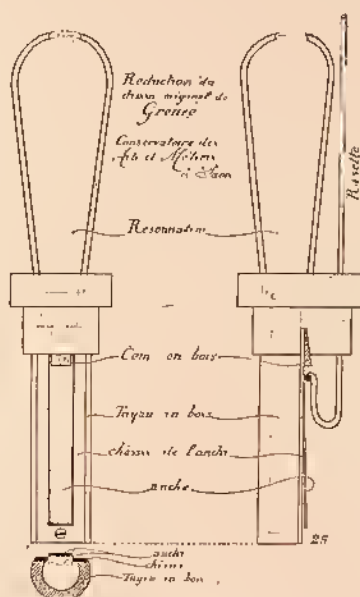 Réduction du
chassis original de
Grenié
Conservatoire des
Arts et Métiers
à Paris
Rasette
Resonnateur
Coin en bois
Tuyau en bois
chassis de l'anche
anche
25
anche
chassis
Tuyau en bois